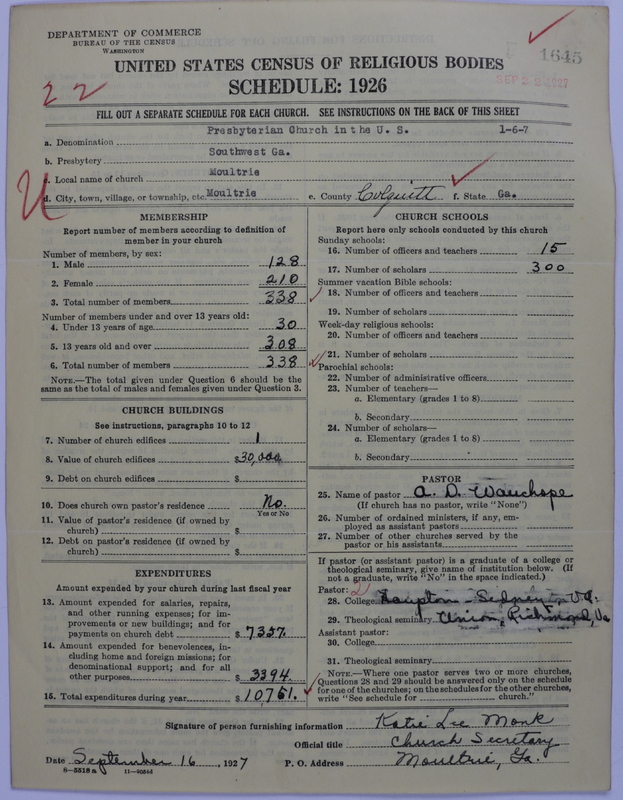 DEPARTMENT OF COMMERCE
BUREAU OF THE CENSUS
WASHINGTON
1645
SEP 22 1927
UNITED STATES CENSUS OF RELIGIOUS BODIES
SCHEDULE: 1926
22
FILL OUT A SEPARATE SCHEDULE FOR EACH CHURCH. SEE INSTRUCTIONS ON THE BACK OF THIS SHEET
a. Denomination Presbyterian Church in the U. S. 1-6-7
b. Presbytery Southwest Ga.
c. Local name of church Moultrie
d. City, town, village, or township, etc. Moultrie e. County Colquitt f. State Ga.
MEMBERSHIP
Report number of members according to definition of
member in your church
Number of members, by sex:
1. Male 128
2. Female 210
3. Total number of members 338
Number of members under and over 13 years old:
4. Under 13 years of age 30
5. 13 years old and over 308
6. Total number of members 338
NOTE.—The total given under Question 6 should be the
same as the total of males and females given under Question 3.
CHURCH BUILDINGS
See instructions, paragraphs 10 to 12
7. Number of church edifices 1
8. Value of church edifices $30,000
9. Debt on church edifices $
10. Does church own pastor's residence No.
Yes or No
11. Value of pastor's residence (if owned by
church) $
12. Debt on pastor's residence (if owned by
church) $
EXPENDITURES
Amount expended by your church during last fiscal year
13. Amount expended for salaries, repairs,
and other running expenses; for im-
provements or new buildings; and for
payments on church debt $ 7357.
14. Amount expended for benevolences, in-
cluding home and foreign missions; for
denominational support; and for all
other purposes $ 3394.
15. Total expenditures during year $ 10751.
CHURCH SCHOOLS
Report here only schools conducted by this church
Sunday schools:
16. Number of officers and teachers 15
17. Number of scholars 300
Summer vacation Bible schools:
18. Number of officers and teachers
19. Number of scholars
Week-day religious schools:
20. Number of officers and teachers
21. Number of scholars
Parochial schools:
22. Number of administrative officers
23. Number of teachers—
a. Elementary (grades 1 to 8)
b. Secondary
24. Number of scholars—
a. Elementary (grades 1 to 8)
b. Secondary
PASTOR
25. Name of pastor A. D. Wauchope
(If church has no pastor, write "None")
26. Number of ordained ministers, if any, em-
ployed as assistant pastors
27. Number of other churches served by the
pastor or his assistants
If pastor (or assistant pastor) is a graduate of a college or
theological seminary, give name of institution below. (If
not a graduate, write "No" in the space indicated.)
Pastor:
28. College Sydney, Va.
29. Theological seminary Union, Richmond, Va
Assistant pastor:
30. College
31. Theological seminary
NOTE.—Where one pastor serves two or more churches,
Questions 28 and 29 should be answered only on the schedule
for one of the churches; on the schedules for the other churches,
write "See schedule for church."
Signature of person furnishing information Katie Lee Monk
Official title Church Secretary
Date September 16, 1927 P. O. Address Moultrie, Ga.
8—5518 a